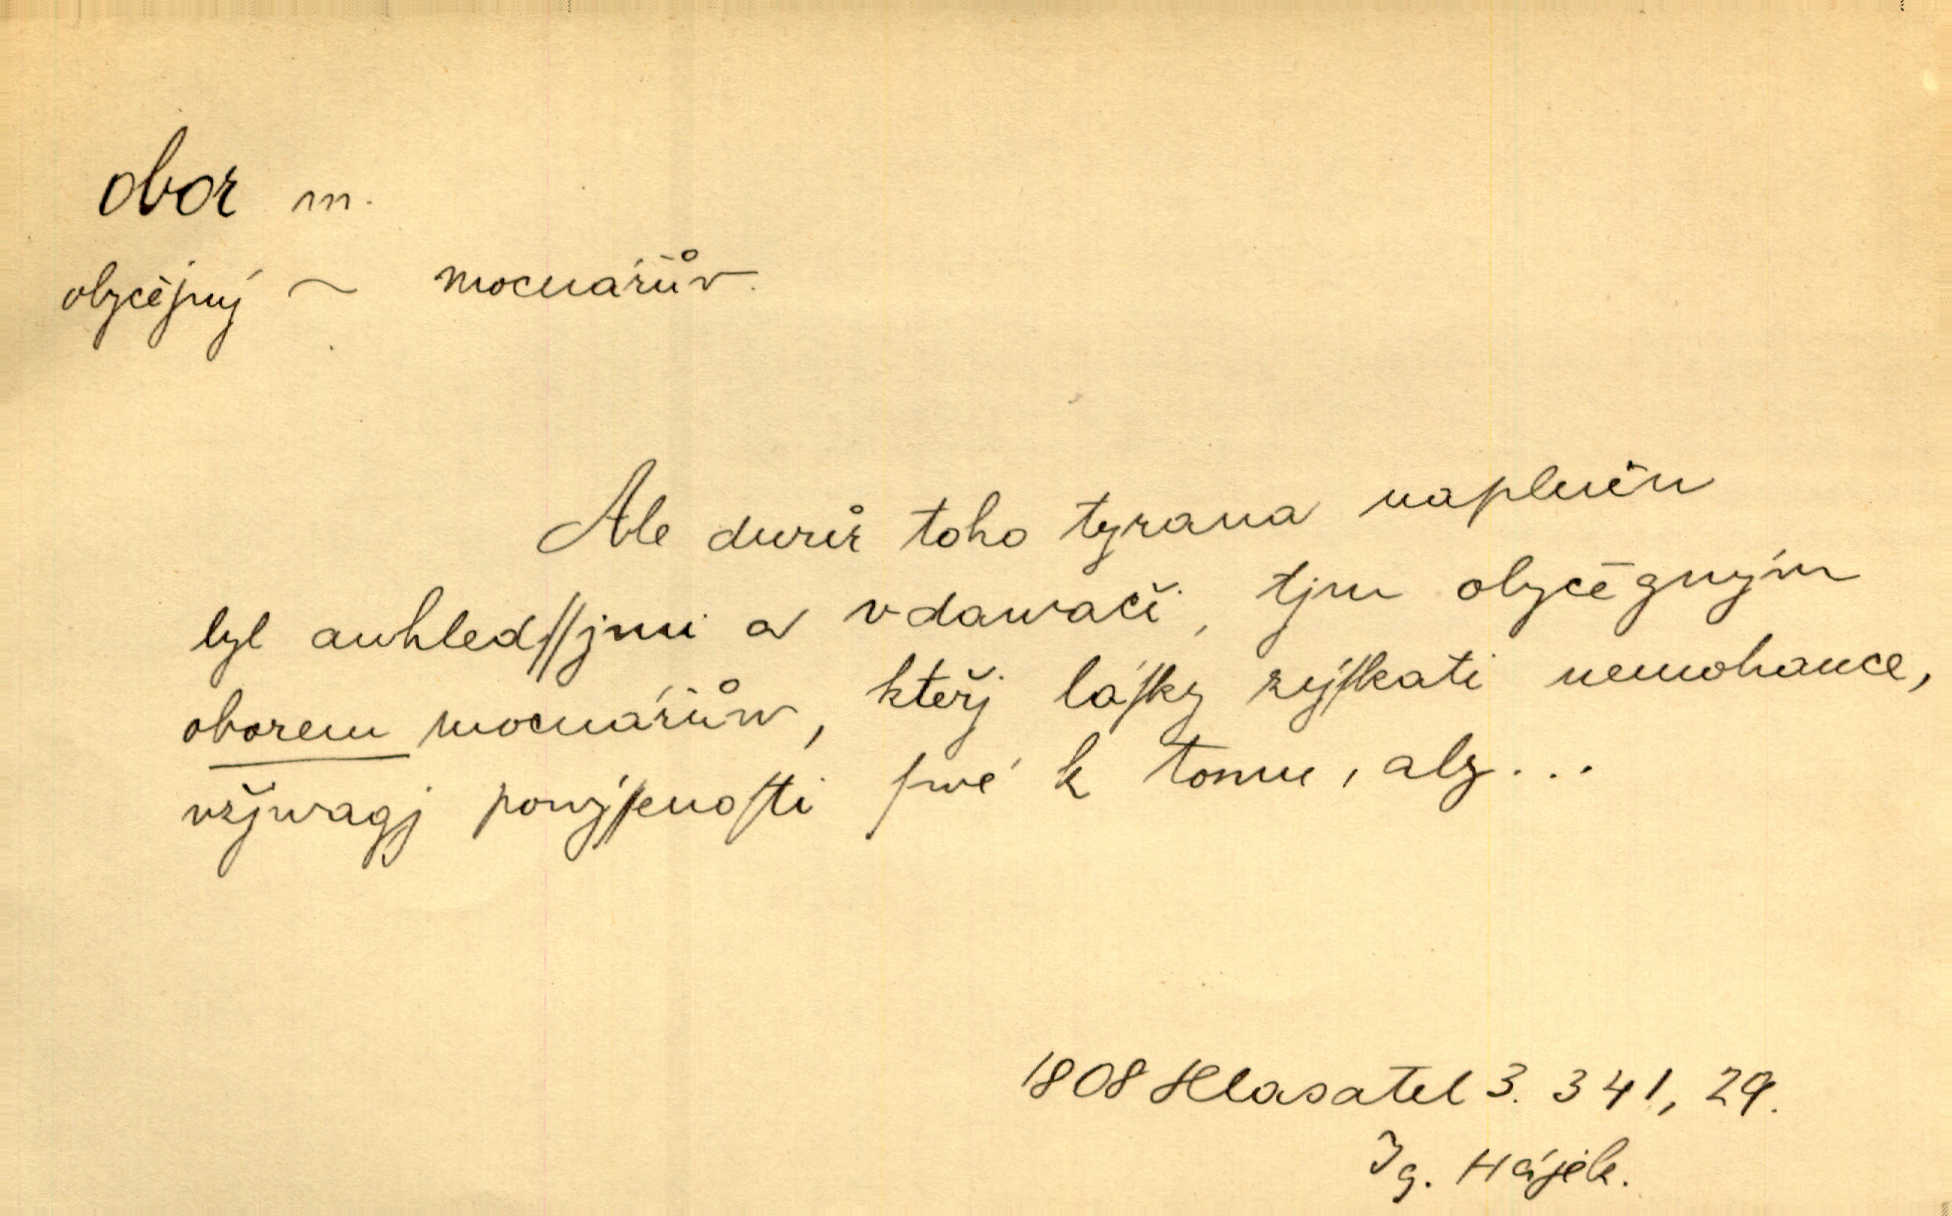 obor m.
obyčejný ~ mocnářův.
Ale dwůr toho tyrana naplněn
byl auhledſſjmi a vdawači, tjm obyčegným
oborem mocnářůw, kteřj láſky zýſkati nemohauce,
vžjwagj powýſſenoſti ſwé k tomu, aby...
1808 Hlasatel 3. 341, 29.
Ig. Hájek.